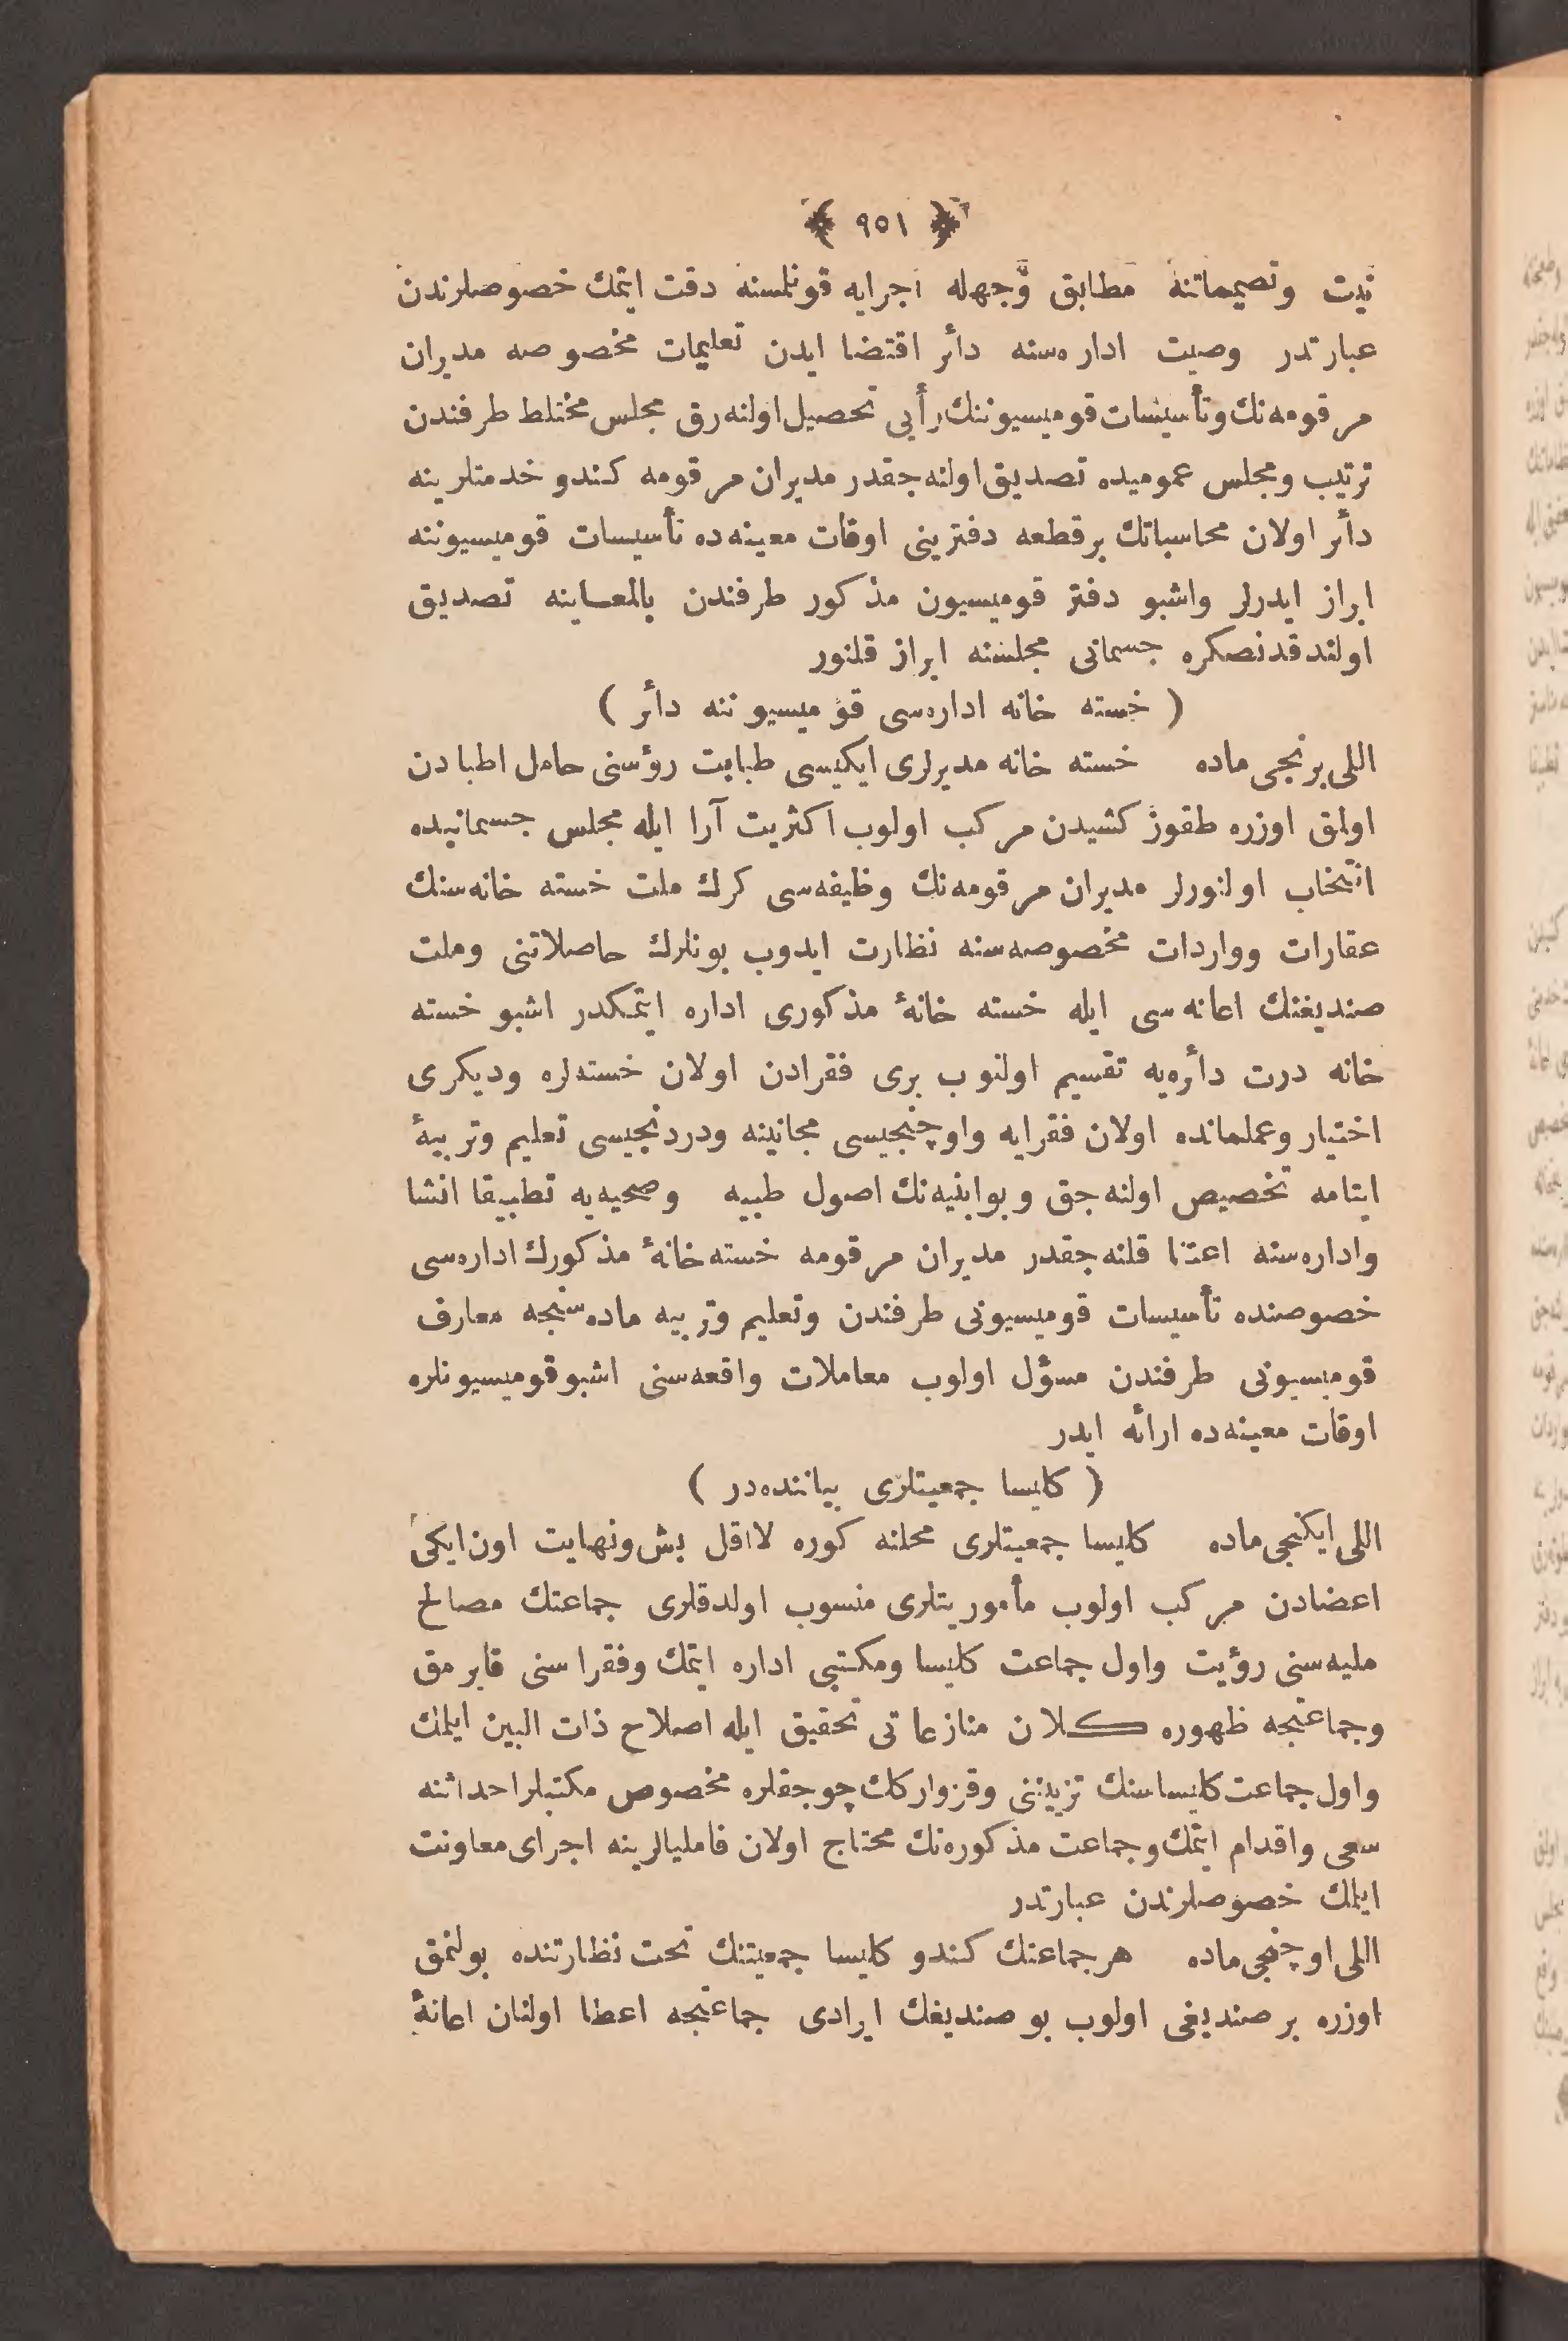 ﴿ ٩٥١ ﴾
نیت وتصمیماتنه مطابق وجهله اجرایه قونلسنه دقت ایتمك خصوصلرندن
عبارتدر وصیت اداره‌سنه دأر اقتضا ایدن تعلیمات مخصوصه مدیران
مرقومه‌نك وتأسیسات قومیسیوننك رأیی تحصیل اولنه‌رق مجلس مختلط طرفندن
ترتیب ومجلس عمومیده تصدیق اولنه‌جقدر مدیران مرقومه كندو خدمتلرینه
دأر اولان محاسباتك برقطعه دفترینی اوقات معینه‌ده تأسیسات قومیسیوننه
ابراز ایدرلر واشبو دفتر قومیسیون مذكور طرفندن بالمعاینه تصدیق
اولندقدنصكره جسمانی مجلسنه ابراز قلنور
( خسته خانه اداره‌سی قومیسیوننه دأر )
اللی برنجی ماده خسته خانه مدیرلری ایكیسی طبابت رؤسنی حامل اطبادن
اولمق اوزره طقوز كشیدن مركب اولوب اكثریت آرا ایله مجلس جسمانیده
انتخاب اولنورلر مدیران مرقومه‌نك وظیفه‌سی كرك ملت خسته خانه‌سنك
عقارات وواردات مخصوصه‌سنه نظارت ایدوب بونلرك حاصلاتنی وملت
صندیغنك اعانه‌سی ایله خسته خانهٔ مذكوری اداره ایتمكدر اشبو خسته
خانه درت دأره‌یه تقسیم اولنوب بری فقرادن اولان خسته‌لره ودیكری
اختیار وعملمانده اولان فقرایه واوچنجیسی مجانینه ودردنجیسی تعلیم وتربیهٔ
ایتامه تخصیص اولنه‌جق وبوابنیه‌نك اصول طبیه وصحیه‌یه تطبیقا انشا
واداره‌سنه اعتنا قلنه‌جقدر مدیران مرقومه خسته‌خانهٔ مذكورك اداره‌سی
خصوصنده تأسیسات قومیسیونی طرفندن وتعلیم وتربیه ماده‌سنجه معارف
قومیسیونی طرفندن مسؤل اولوب معاملات واقعه‌سنی اشبوقومیسیونلره
اوقات معینه‌ده ارائه ایدر
( كلیسا جمعیتلری بیاننده‌در )
اللی ایكنجی ماده كلیسا جمعیتلری محلنه كوره لااقل بش ونهایت اون ایكی
اعضادن مركب اولوب مأموریتلری منسوب اولدقلری جماعتك مصالح
ملیه‌سنی رؤیت واول جماعت كلیسا ومكتبی اداره ایتمك وفقراسنی قایرمق
وجماعتجه ظهوره كلان منازعاتی تحقیق ایله اصلاح ذات البین ایلمك
واول جماعت كلیساسنك تزیننی وقزواركك چوجقلره مخصوص مكتبلراحداثنه
سعی واقدام ایتمك وجماعت مذكوره‌نك محتاج اولان فامیالرینه اجرای معاونت
ایلمك خصوصلرندن عبارتدر
اللی اوچنجی ماده هرجماعتك كندو كلیسا جمعیتنك تحت نظارتنده بولنمق
اوزره بر صندیغی اولوب بو صندیغك ایرادی جماعتجه اعطا اولنان اعانهٔ